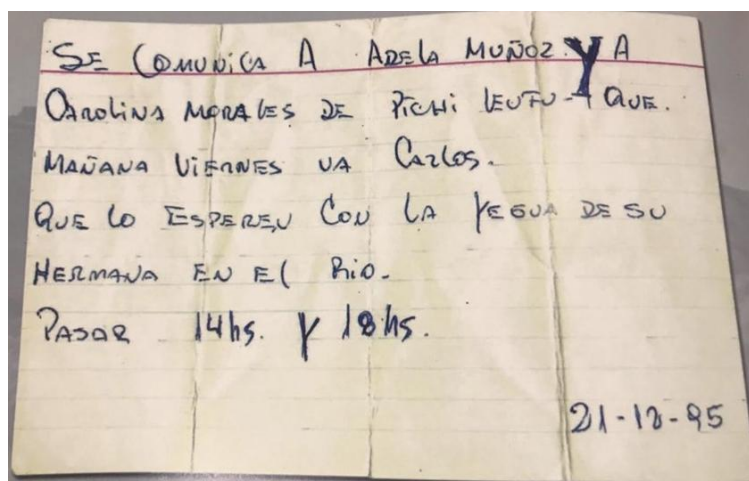 SE COMUNICA A ADELA MUÑOZ Y A
CAROLINA MORALES DE PICHI LEUFU- QUE.
MAÑANA VIERNES VA CARLOS.
QUE LO ESPEREN CON LA YEGUA DE SU
HERMANA EN EL RIO.
PASAR 14hs. Y 18hs.
21-12-95